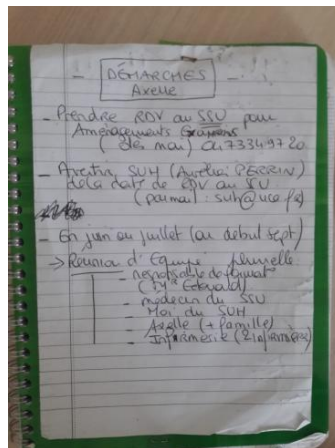 DÉMARCHES
Axelle
- Prendre RDV au SSU pour
Aménagements Examens
(dès mai) 0473349720
- Avertir SUH (Aurélie PERRIN)
de la date de RDV au SSU
(par mail : suh@uca.fr)
- En juin ou juillet (ou début sept)
→ Réunion d'Equipe plurielle
- responsable de format°
- médecin du SSU
- Moi du SUH
- Axelle (+ famille)
- Infirmière